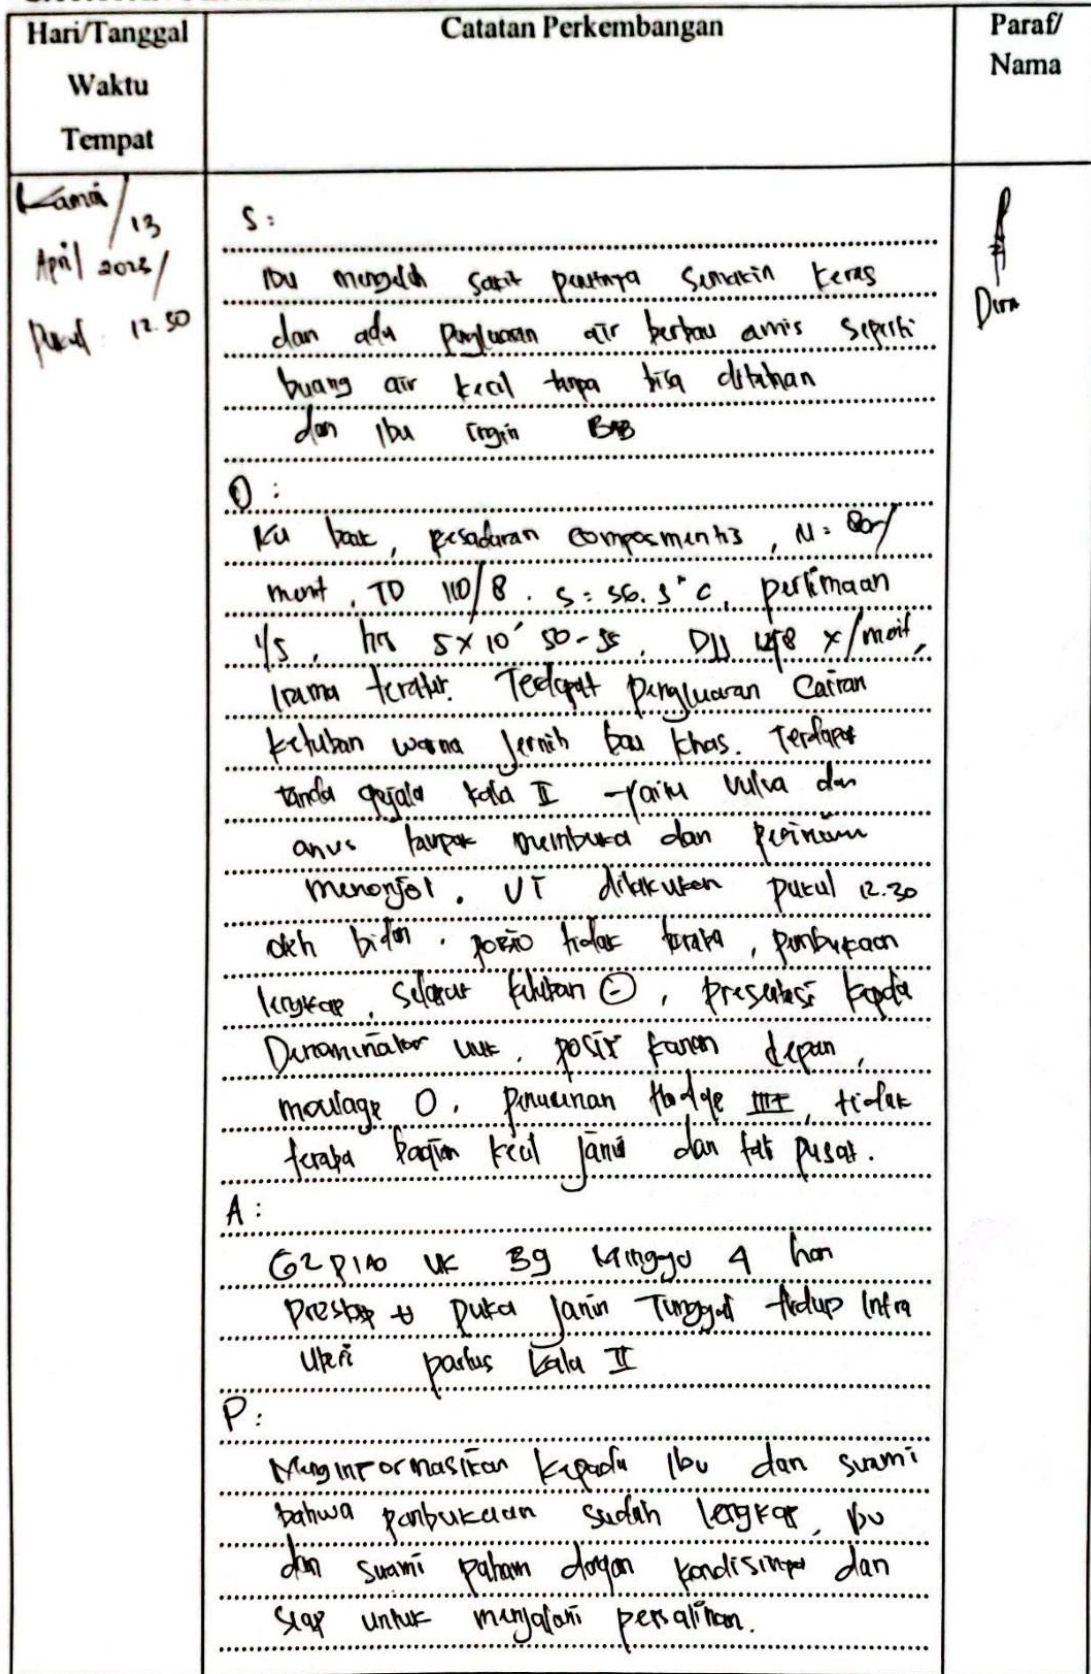 Hari/Tanggal
Waktu
Tempat
Catatan Perkembangan
Paraf/
Nama
Kamis/
13
April 2023/
Pukul : 12.30
S :
Ibu mengeluh sakit perutnya semakin keras
dan ada pengluaran air berbau amis seperti
buang air kecil tanpa bisa ditahan
dan Ibu ingin BAB
O :
KU baik, kesadaran composmentis, N : 80x/
menit, TD 110/8. S : 36.3°C, perlimaan
1/5, his 5x10' 50-55, DJJ 148 x/menit,
Irama teratur. Terdapat pengluaran Cairan
ketuban warna Jernih bau khas. Terdapat
tanda gejala kala II yaitu vulva dan
anus tampak membuka dan perineum
menonjol. VT dilakukan pukul 12.30
oleh bidan. porsio tidak teraba, pembukaan
lengkap, Selaput ketuban (-), presentasi kepala
Denominator UUK, posisi kanan depan,
moulage 0, penurunan Hodge III, tidak
teraba bagian kecil janin dan tali pusat.
A :
G2P1A0 UK 39 Minggu 4 hari
Preskep puka Janin Tunggal Hidup Intra
Uteri partus kala II
P :
Menginformasikan kepada Ibu dan suami
bahwa pembukaan sudah lengkap, Ibu
dan suami paham dengan kondisinya dan
siap untuk menjalani persalinan.
Dira